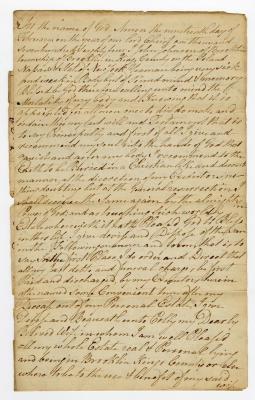 In the name of God Amen the nineteenth day of
February in the year our Lord Christ one thousand
Seven hundred & seventy I John of the
township of Brooklin in Kings County on the Island
Nassau Colony of New York Yeoman being very sick
and weak in Body but of Sound mind & memory
Blessed be God therefore calling unto mind the
Mortality of my body and knowing that it is
appointed for all men once to die do make and
ordain this my last will and Testament that is
to say Principally and first of all I give and
recommend my soul into the hands of God that
gave it and as for my body I recommend to the
Earth to be Buried in a Christian like and decent
manner at the discretion of my Executors no
thing doubting but at the general resurrection I
shall receive the Same again by the almighty
Power of God and as touching such worldly
Estate wherewith it hath Pleased God to bless
me with I give demise and dispose of the same
in the following manner and form, that is to
say In the first Place I do order and Direct that
all my just debts and funeral charges be first
Paid and discharged by my Executors herein
after named Some Convenient time after my
Decease out of my Personal Estate I give
Devise and Bequeath unto my Dearly
Beloved Wife in whom I am well Pleased
all my whole Estate real & Personal lying
and being in Brooklin Kings County or else
where to be to the use & benefit of my said